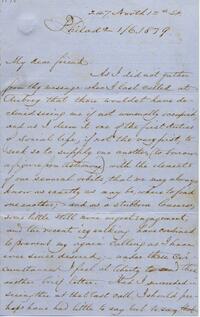 247 North 12th St.
Philada 1/6. 1879.
My dear friend.
As I did not gather
from thy message when I last called at
that there wouldn't have
clined seeing me if not unusually occupied
and as I deem it one of the first duties
of social life, if not the very first, to
send or to supply one another, (to use
a figure in ) with the
of our several orbits, that we may always
know as exactly as may be, where to find
one another; and as a stubborn
some little still more urgent engagement,
and the recent have combined
to prevent my again calling as I have
ever since desired; under these cir-
cumstances I feel at liberty to send thee
another brief letter. Had I succeeded in
seeing thee at the last call, I should per-
haps have had little to say but to say